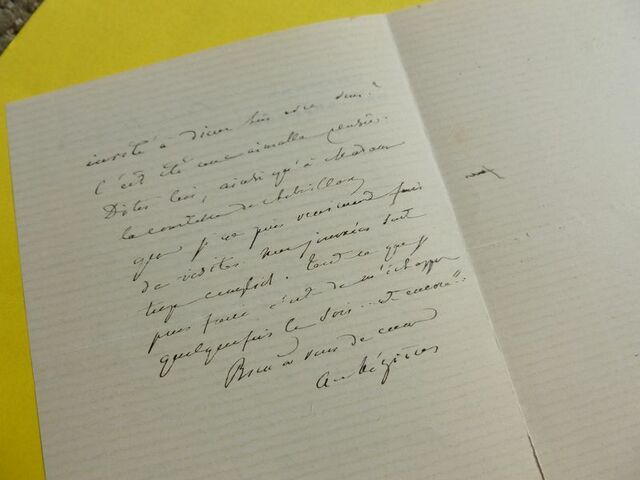 invité à dîner hier avec vous?
C'eut été une aimable pensée.
Dites lui, ainsi qu'à Madame
la comtesse de
que je ne puis vraiment faire
de visites mes journées sont
trop . Tout ce que je
puis faire c'est de m'échapper
quelquefois le soir .. et encore!!
Bien à vous de cœur